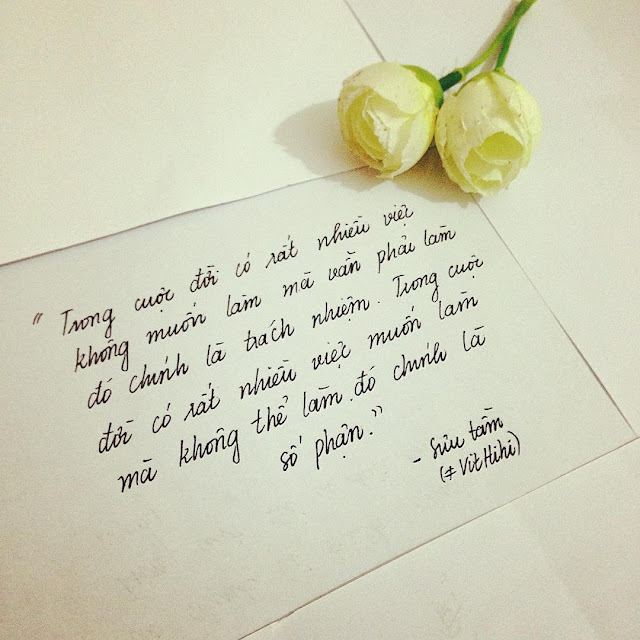 " Trong cuộc đời có rất nhiều việc
không muốn làm mà vẫn phải làm
đó chính là trách nhiệm. Trong cuộc
đời có rất nhiều việc muốn làm
mà không thể làm đó chính là
số phận."
- Sưu tầm
(#VitHihi)